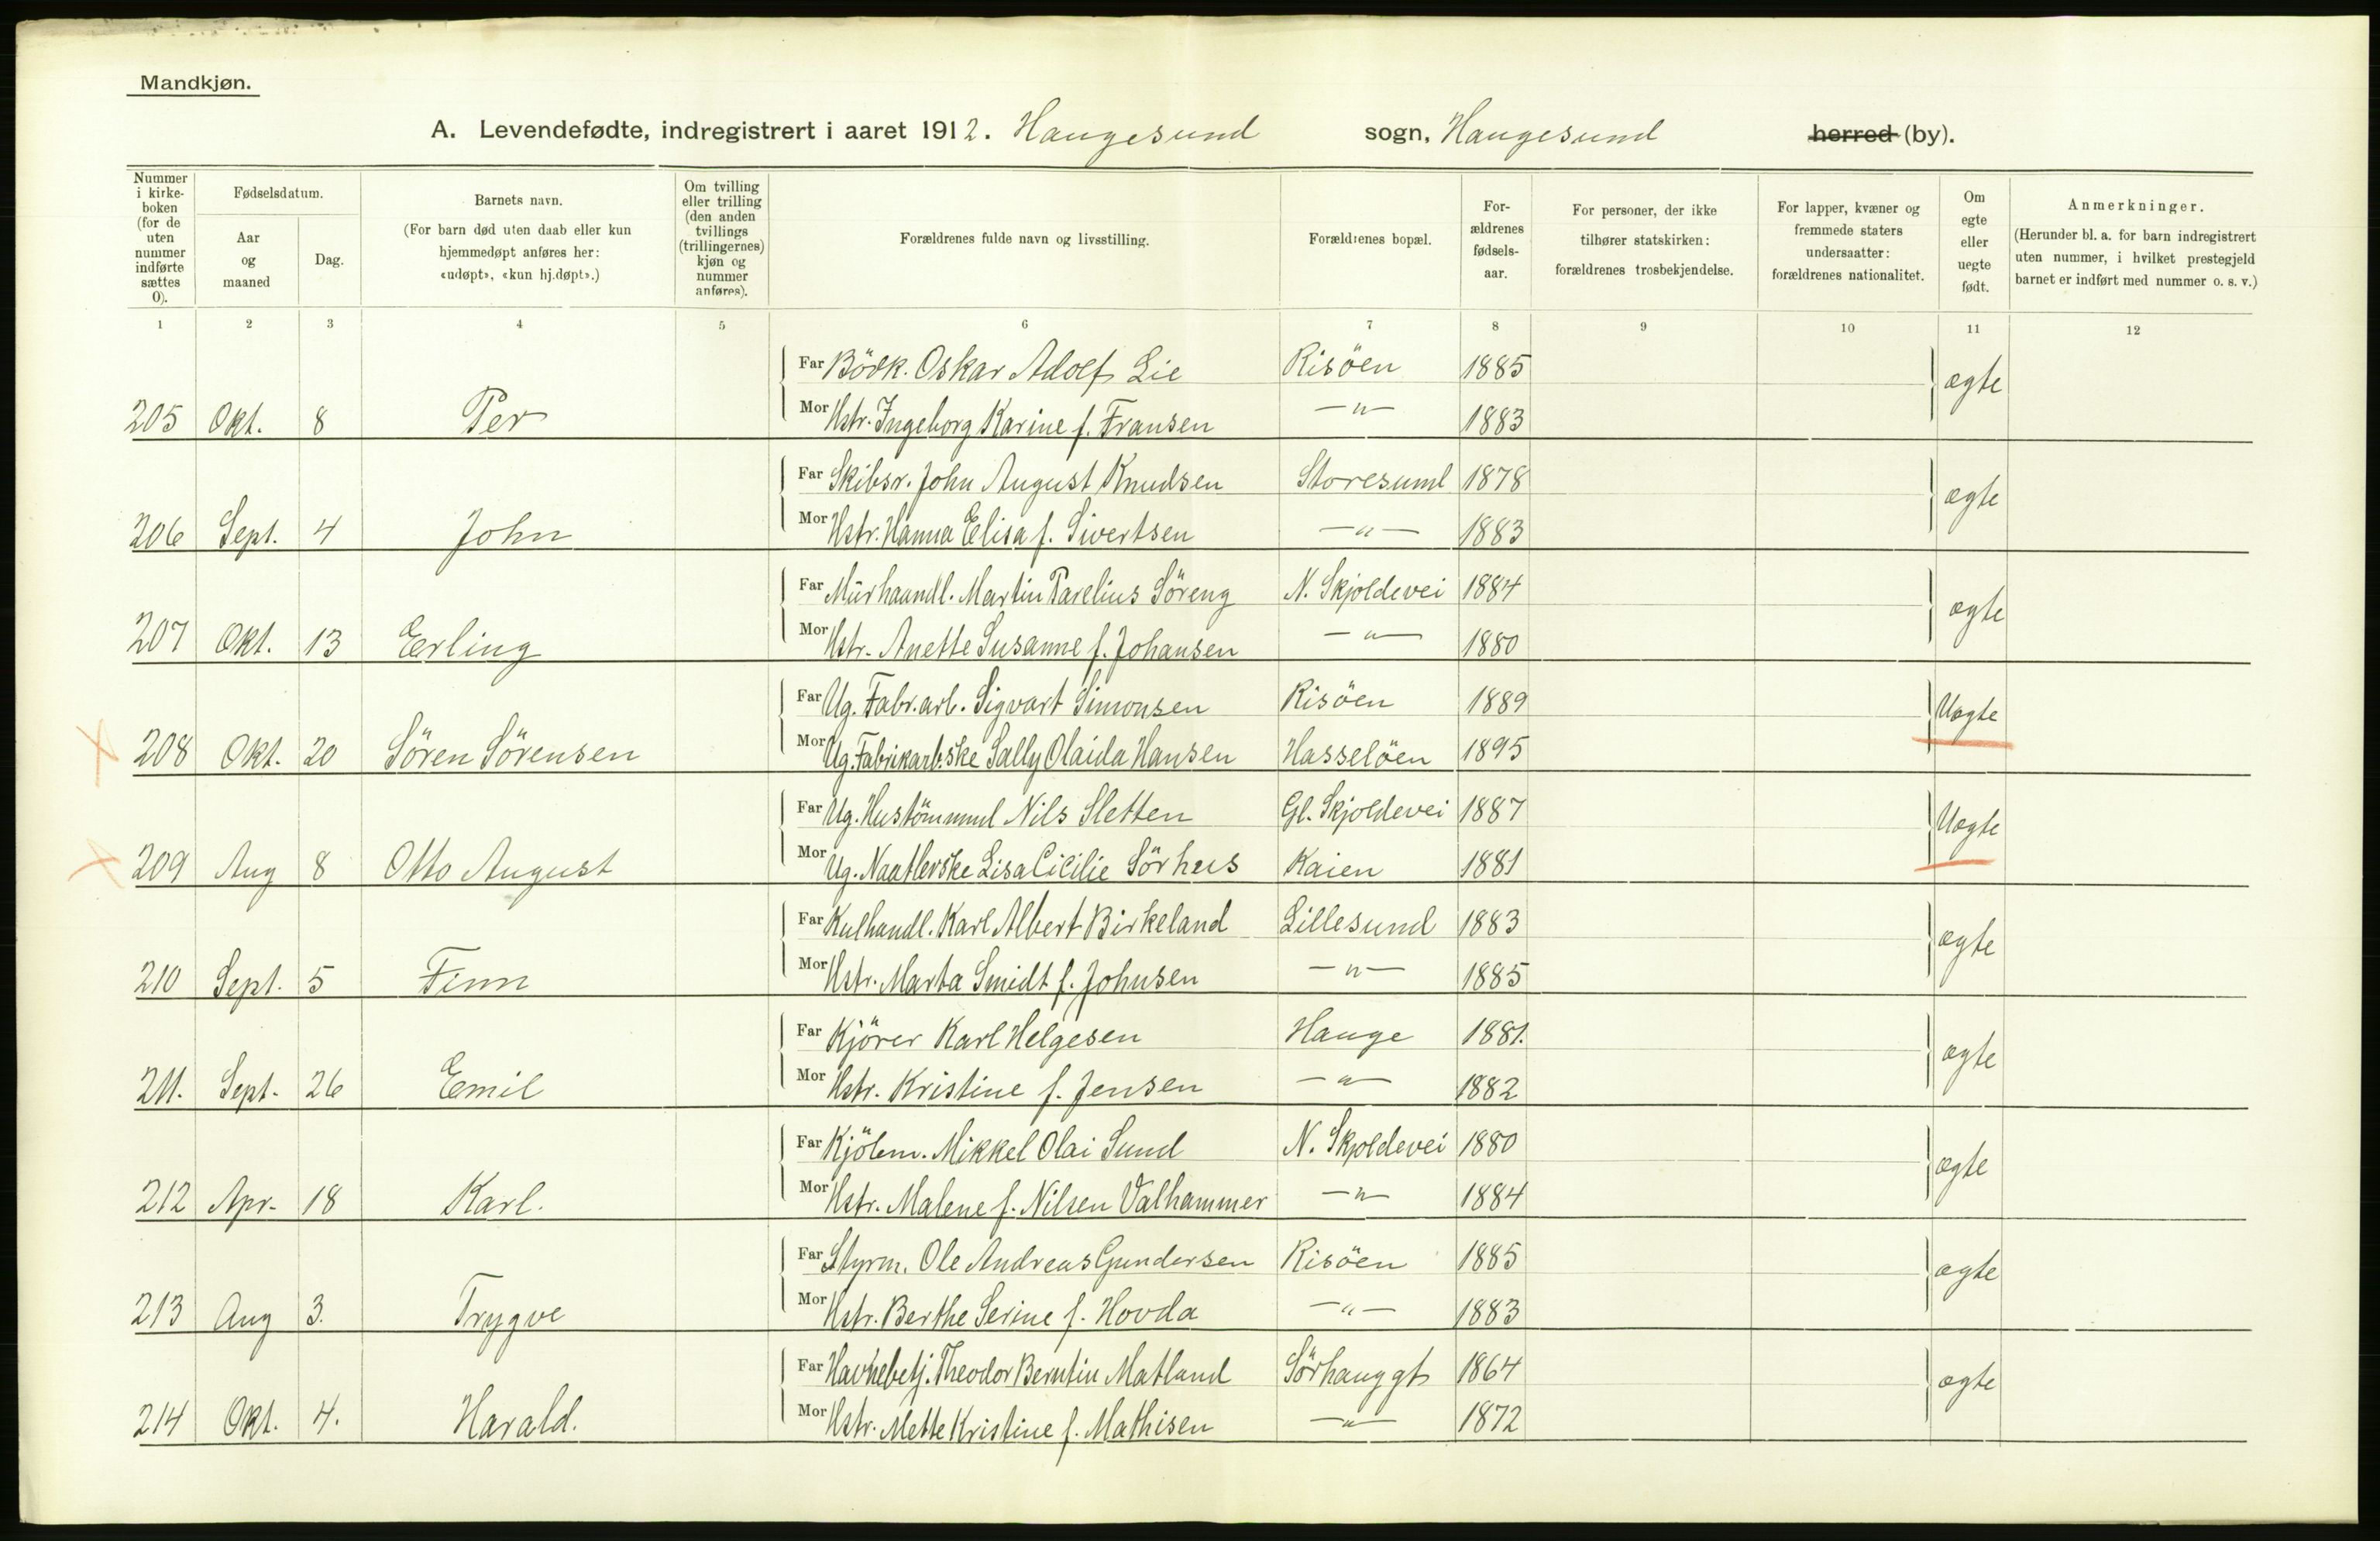 Mandkjøn.
A. Levendefødte, indregistrert i aaret 1912. Haugesund sogn, Haugesund herred (by).
Nummer i kirke-boken (for de uten nummer indførte sættes 0).
Fødselsdatum.
Aar og maaned
Dag.
Barnets navn.
(For barn død uten daab eller kun hjemmedøpt anføres her: «udøpt», «kun hj.døpt».)
Om tvilling eller trilling (den anden tvillings (trillingernes) kjøn og nummer anføres).
Forældrenes fulde navn og livsstilling.
Forældrenes bopæl.
For-ældrenes fødsels-aar.
For personer, der ikke tilhører statskirken: forældrenes trosbekjendelse.
For lapper, kvæner og fremmede staters undersaatter: forældrenes nationalitet.
Om egte eller uegte født.
Anmerkninger.
(Herunder bl. a. for barn indregistrert uten nummer, i hvilket prestegjeld barnet er indført med nummer o. s. v.)
1 2 3 4 5 6 7 8 9 10 11 12
Far Bödk. Oskar Adolf Lie Risöen 1885 ægte
205 Okt. 8 Per Mor Hstr. Ingeborg Karine f. Fransen —"— 1883
Far Skibsr. John August Knudsen Storesund 1878 ægte
206 Sept. 4 John Mor Hstr. Hanna Elisa f. Sivertsen —"— 1883
Far Murhaandl. Martin Parelius Söreng N. Skjoldevei 1884 ægte
207 Okt. 13 Erling Mor Hstr. Anette Susanne f. Johansen —"— 1880
Far Ug. Fabr.arb. Sigvart Simonsen Risöen 1889 Uægte
208 Okt. 20 Sören Sörensen Mor Ug. Fabrikarb.ske Sally Olaida Hansen Hasselöen 1895
Far Ug. Hustömmml Nils Sletten Gl. Skjoldevei 1887 Uægte
209 Aug 8 Otto August Mor Ug. Naatlerske Lisa Cicilie Sörhus Kaien 1881
Far Kulhandl. Karl Albert Birkeland Lillesund 1883 ægte
210 Sept. 5 Finn Mor Hstr. Marta Smidt f. Johnsen —"— 1885
Far Kjörer Karl Helgesen Hauge 1881. ægte
211. Sept. 26 Emil Mor Hstr. Kristine f. Jensen —"— 1882
Far Kjölem. Mikkel Olai Sund N. Skjoldevei 1880 ægte
212 Apr. 18 Karl. Mor Hstr. Malene f. Nilsen Valhammer —"— 1884
Far Styrm. Ole Andreas Gundersen Risöen 1885 ægte
213 Aug 3. Trygve Mor Hstr. Berthe Serine f. Hovda —"— 1883
Far Havnebetj. Theodor Berntin Matland Sörhauggt 1864 ægte
214 Okt. 4. Harald. Mor Hstr. Mette Kristine f. Mathisen —"— 1872